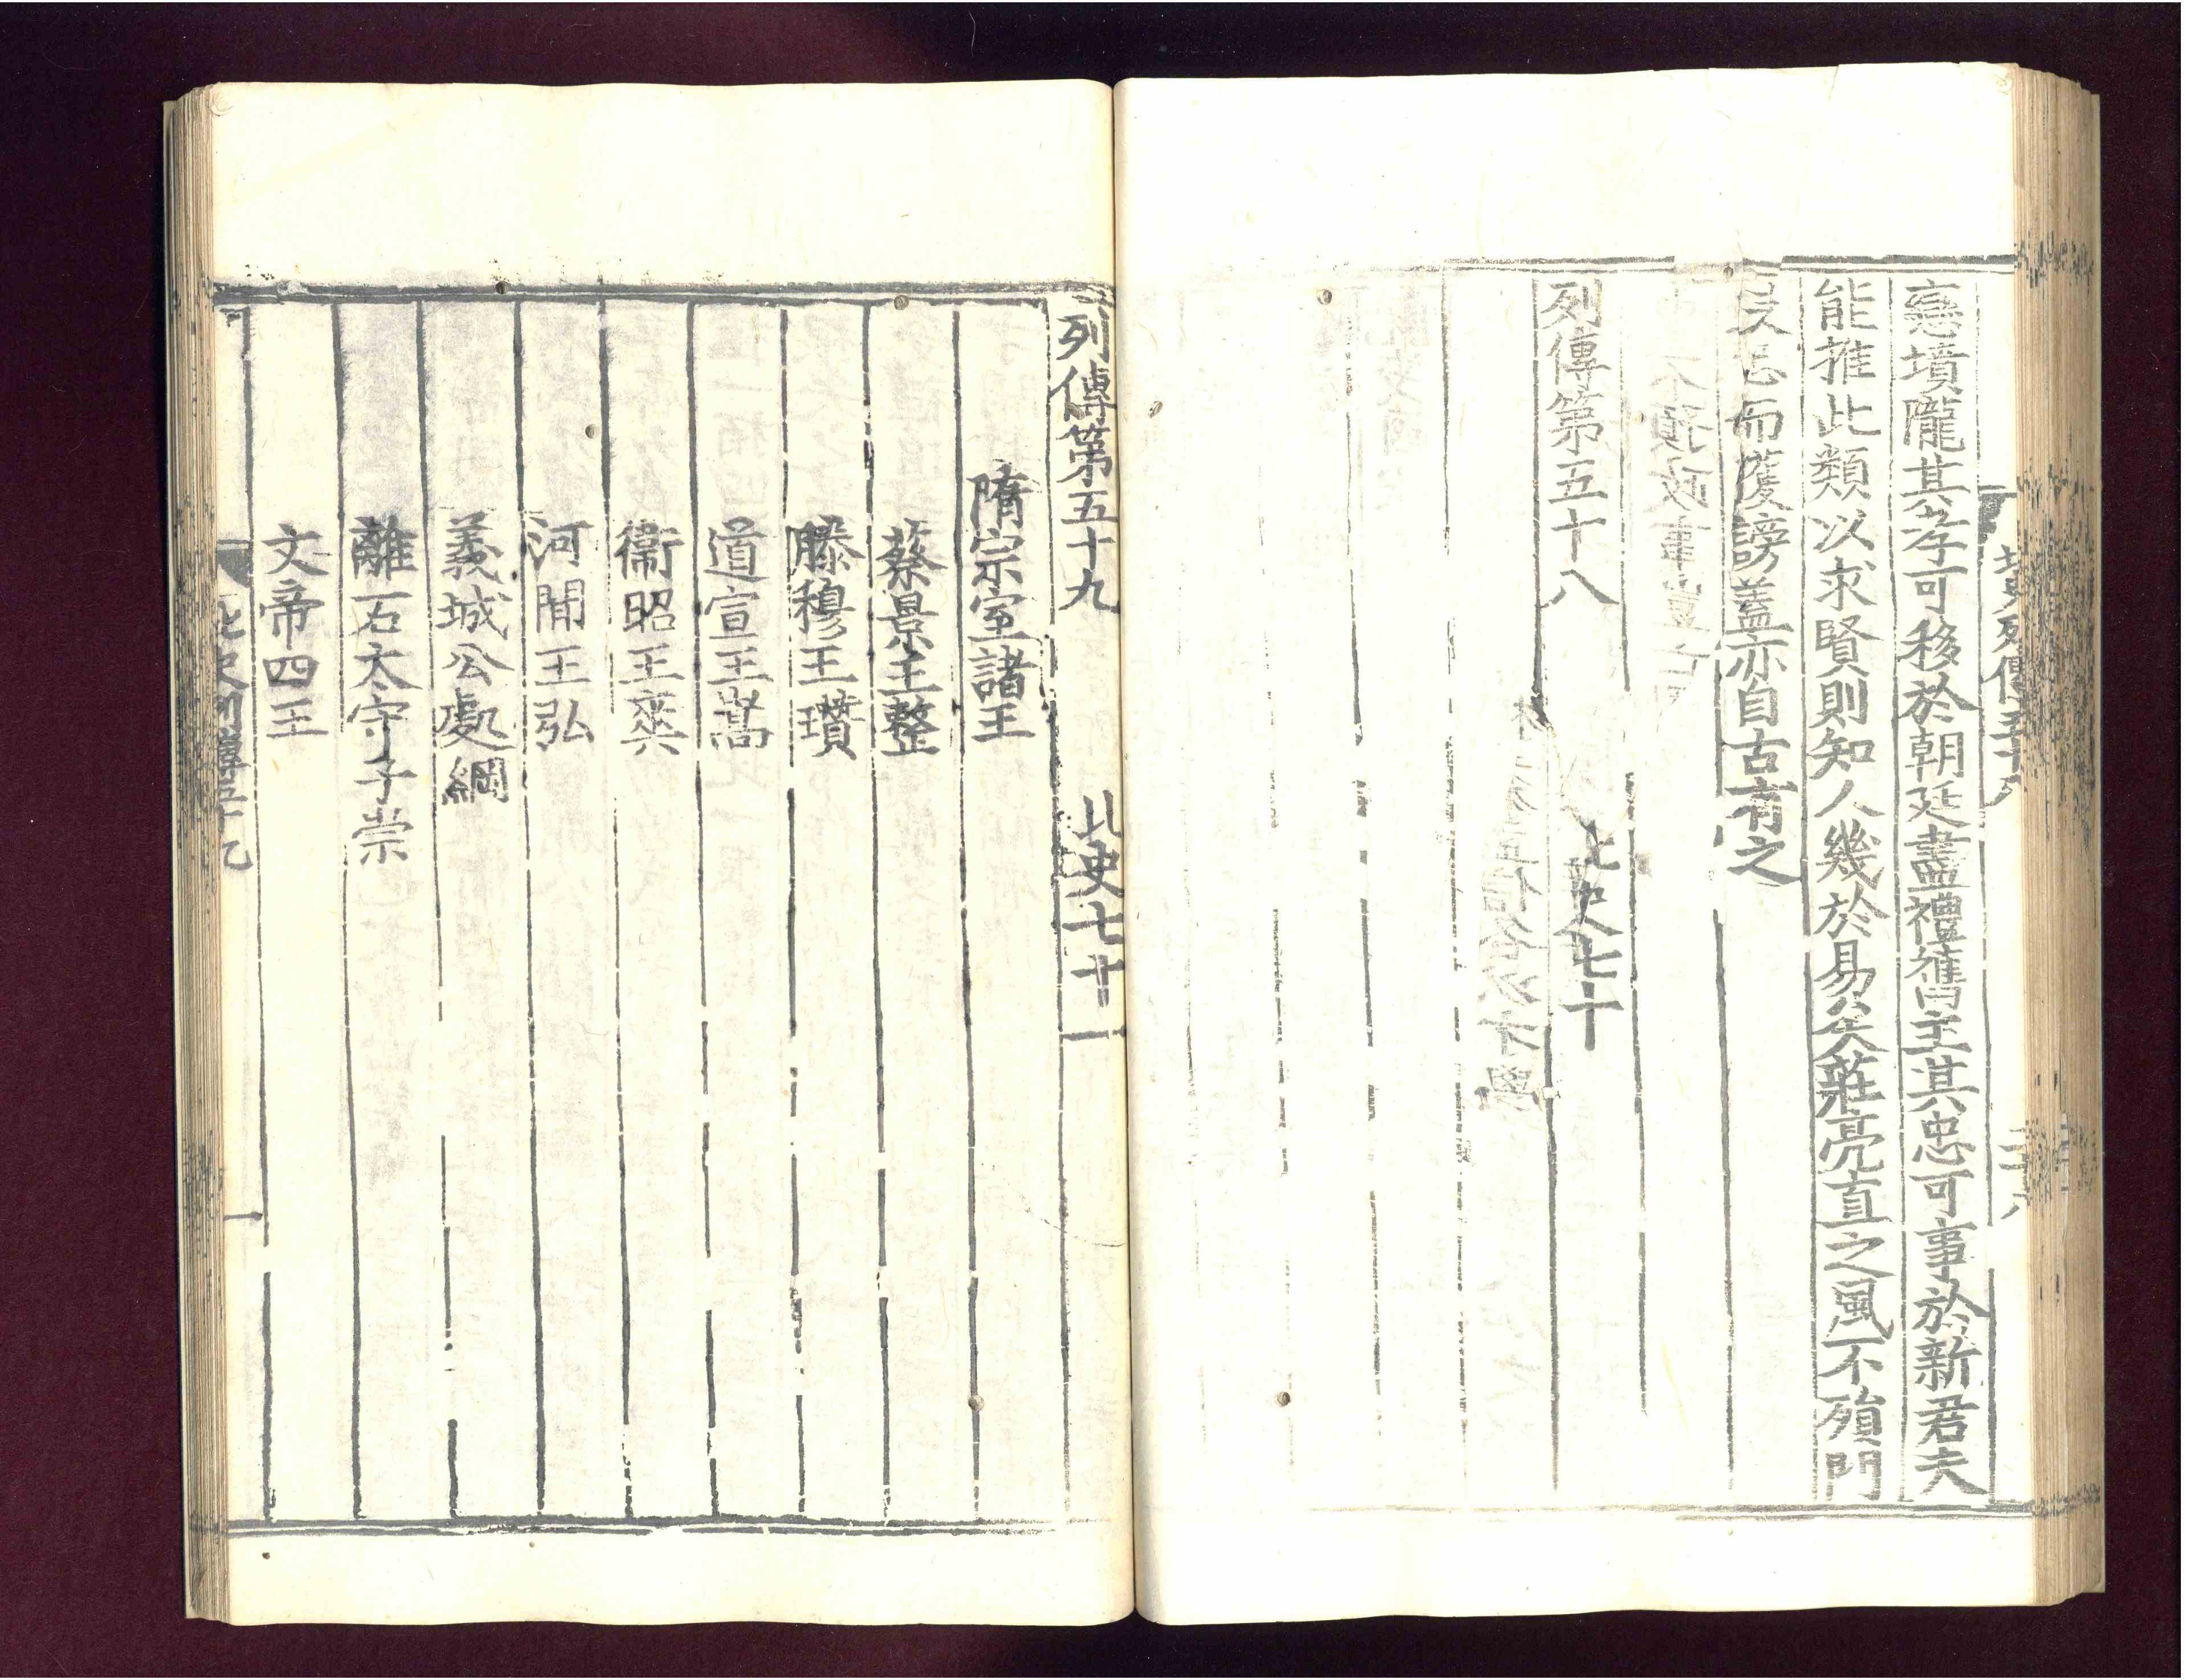 北史列傳五十八
二十八
戀墳隴其孝可移於朝廷盡禮舊主其忠可事於新君夫
能推此類以求賢則知人幾於易矣莊亮直之風不殞門
而獲謗蓋亦自古有之
列傳第五十八
北史七十
列傳第五十九
北史七十一
隋宗室諸王
蔡景王整
滕穆王瓚
道宣王嵩
衞昭王爽
河間王弘
義城公處綱
離石太守子崇
文帝四王
北史列傳五十九
一